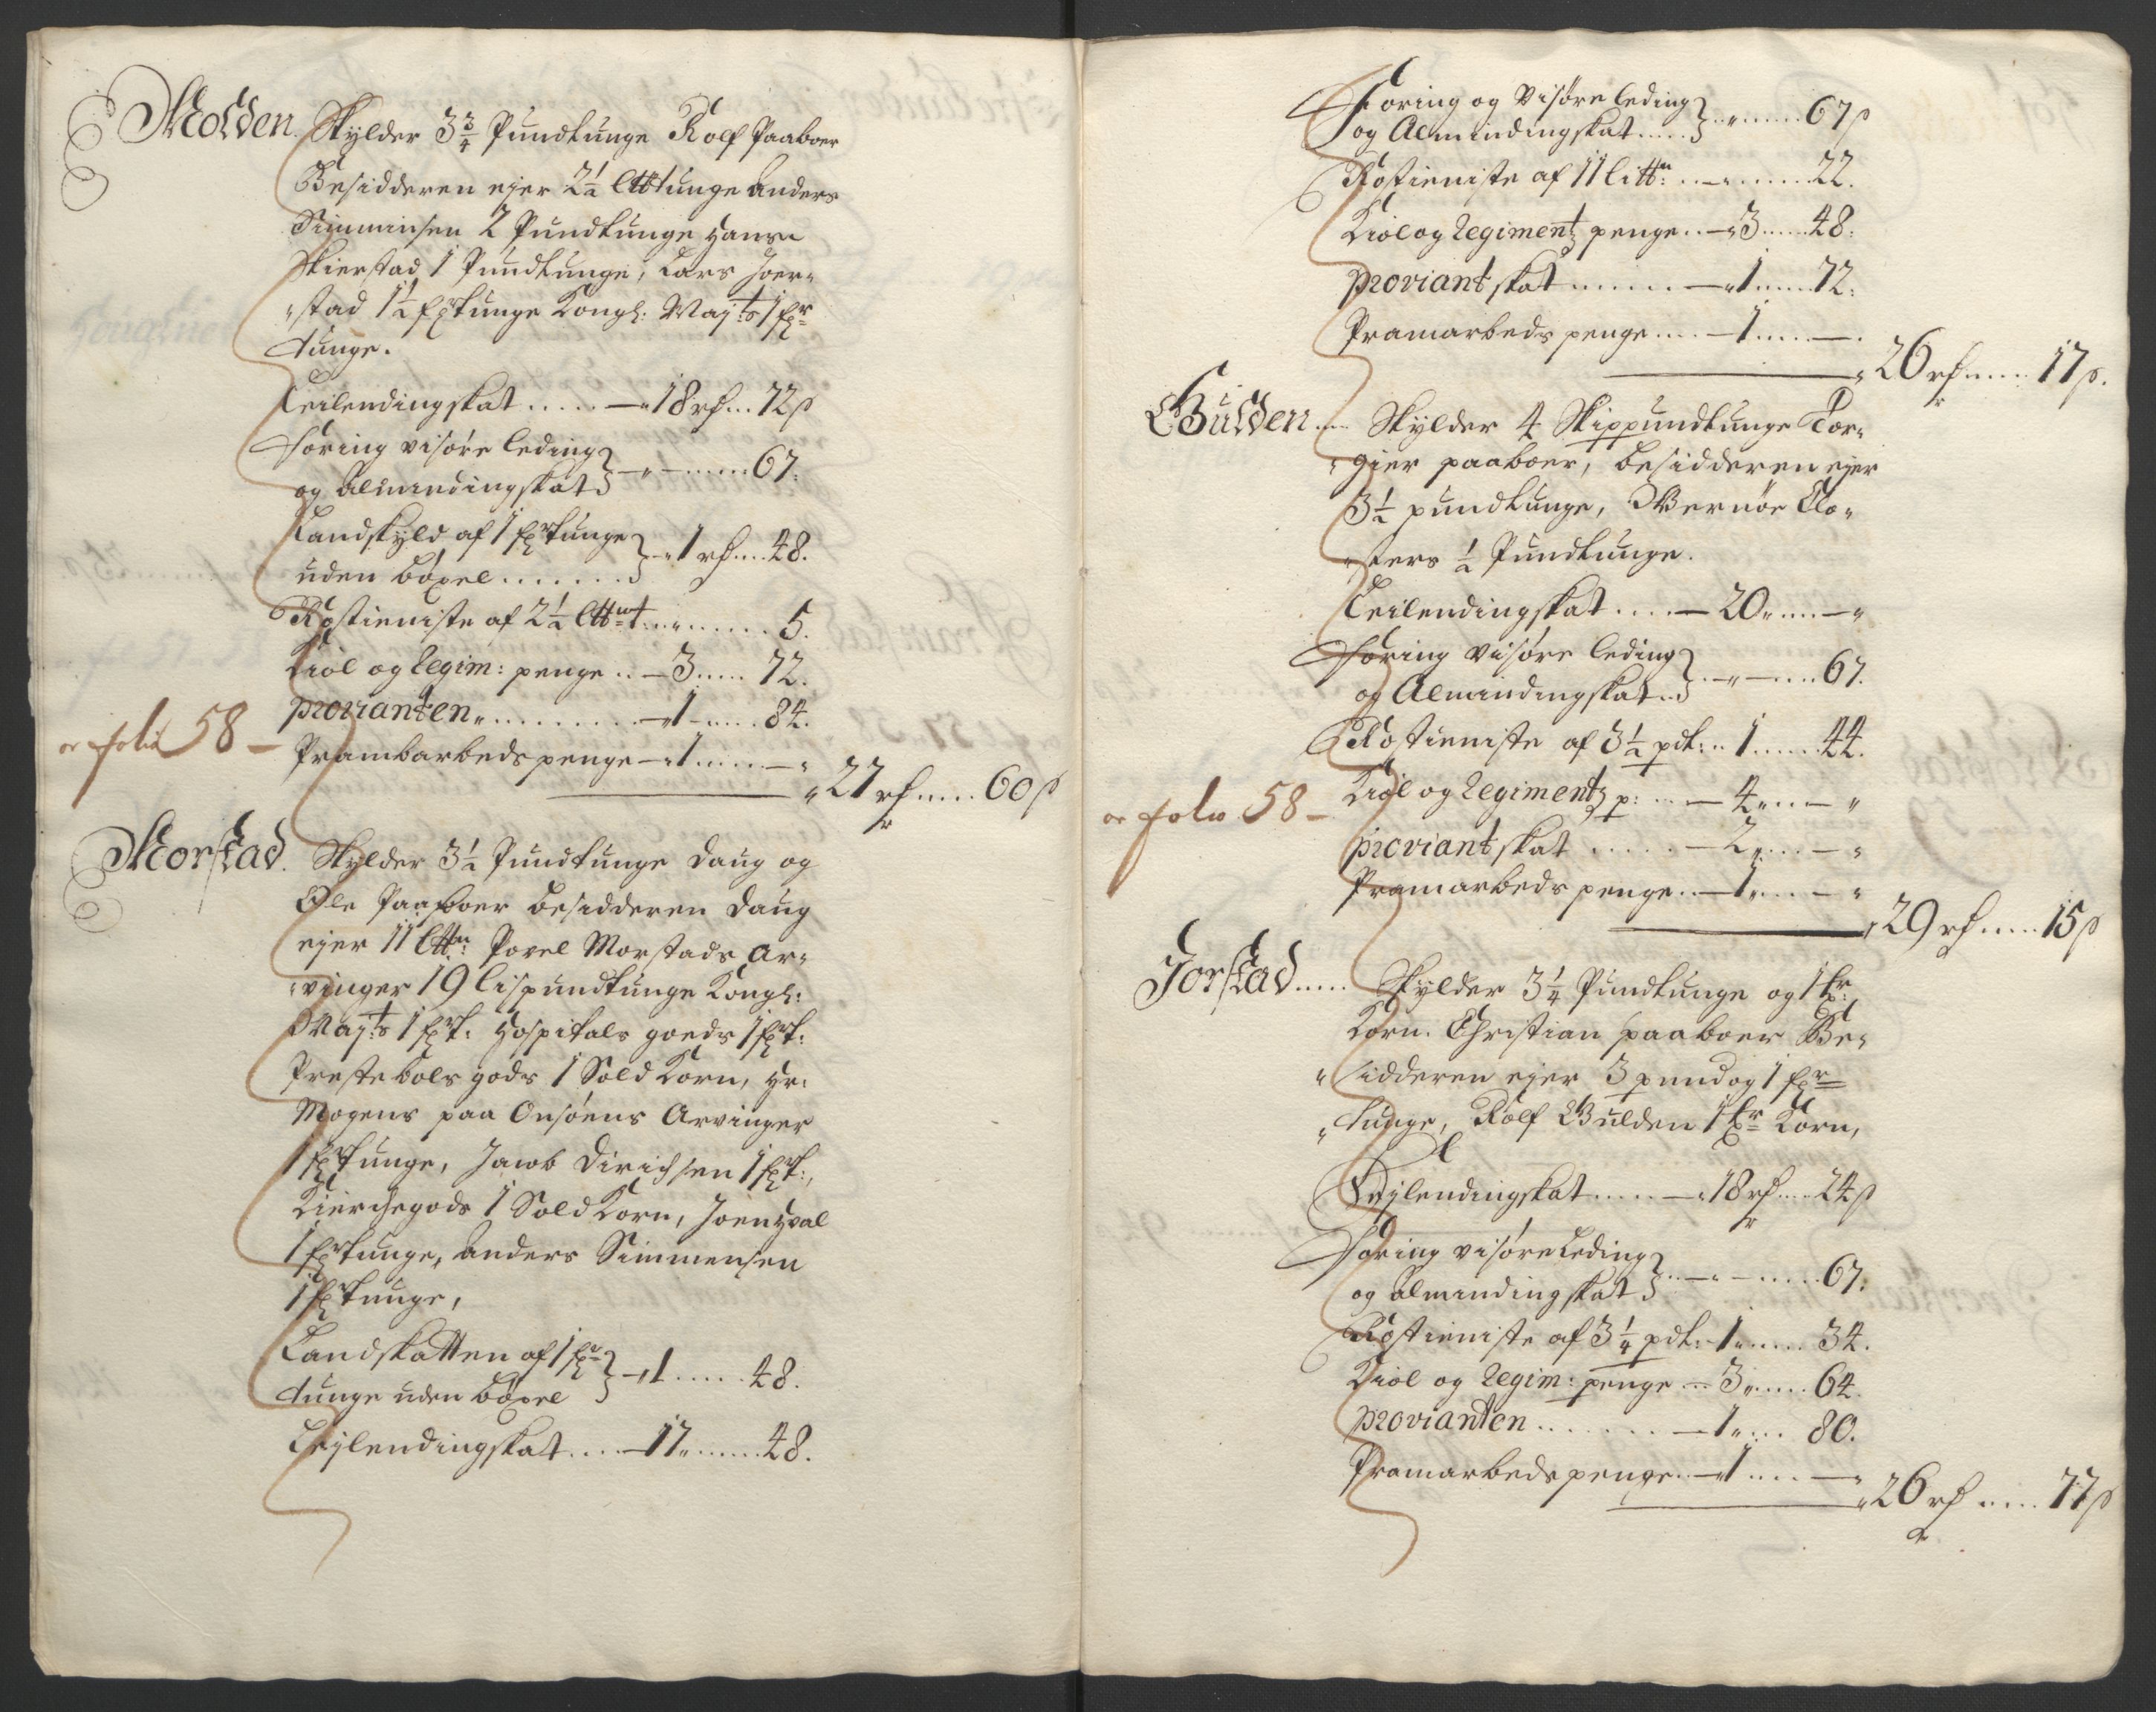 Molden. Skylder 3 3/4 Pundtunge Rolf Paaboer
Besidderen ejer 2 1/2 L℔tunge Anders
Simminsen 2 Pundtunge Hans
Skierstad 1 Pundtunge, Lars Joer-
stad 1 1/2 fp^rtunge Kongl: Maj^ts 1 fp^r
tunge.
Leilendingskat ..... — 18 rd ... 72 ß
Foring visøre leding
og Almindingskat } — " — ..... 67.
Landskyld af 1 fp^rtunge
uden böxel ....... } — 1 rd .... 48.
Rostieniste af 2 1/2 L℔t: ..... 5.
Kiol og Regim: penge .. — 3 ..... 72.
provianten ......... — 1 ..... 84.
folio 58 —
Prambarbeds penge — 1 ..... — "
27 rd ..... 60 ß
Morstad. Skylder 3 1/2 Pundtunge Daug og
Ole Paaboer Besidderen Daug
ejer 11 L℔: Povel Morstads Ar-
vinger 19 Lispundtunge Kongl:
Maj^ts 1 fp^rt: Hospitals goeds 1 fp^rt:
Prestebols gods 1 Sold Korn, Hr:
Mogens paa Onsöens Arvinger
1 fp^rtunge, Jacob Dirichsen 1 fp^rt:,
Kierchegods 1 Sold Korn, Joen Hval
1 fp^rtunge, Anders Simmensen
1 fp^rtunge,
Landskatten af 1 fp^r
tunge uden böxel } — 1 ..... 48.
Lejlendingskat .... — 17 ...... 48.
Foring og Visøre leding
og Almindingskat ..... } .. " ..... 67 ß
Rostieniste af 11 Li℔: .. — ..... 22.
Kiol og Regiment penge .. — 3 ..... 48.
proviant skat ...... — 1 ..... 72.
Pramarbeds penge .... — 1 ..... — .
26 rd ..... 17 ß.
Gulden .... Skylder 4 Skippundtunge Tor-
gier paaboer, besidderen ejer
3 1/2 pundtunge, Wernöe Clo-
sters 1/2 Pundtunge.
Leilendingskat .... — 20 ..... — "
Foring Visøre leding
og Almindingskat .. } .. — " — .... 67.
Rostieniste af 3 1/2 pdt: .. 1 ..... 44.
folio 58 —
Kiol og Regiment p: ... — 4 ..... — "
proviant skat ..... — 2 ..... — "
Pramarbeds penge .. — 1 ..... — "
29 rd ..... 15 ß
Jorstad ..... Skylder 3 1/4 Pundtunge og 1 fr:
Korn. Christian paaboer Be-
sidderen ejer 3 pund og 1 fp^r
tunge, Rolf Gulden 1 fr Korn,
Lejlendingskat ..... — 18 rd .... 24 ß
Foring visøre Leding
og Almindingskat } .. — " — ..... 67.
Rostieniste af 3 1/4 pdt: 1 ..... 34.
Kiol og Regim: penge — 3 ..... 64.
provianten ....... — 1 .... 80.
Pramarbeds penge .. — 1 .... — "
26 rd ..... 77 ß